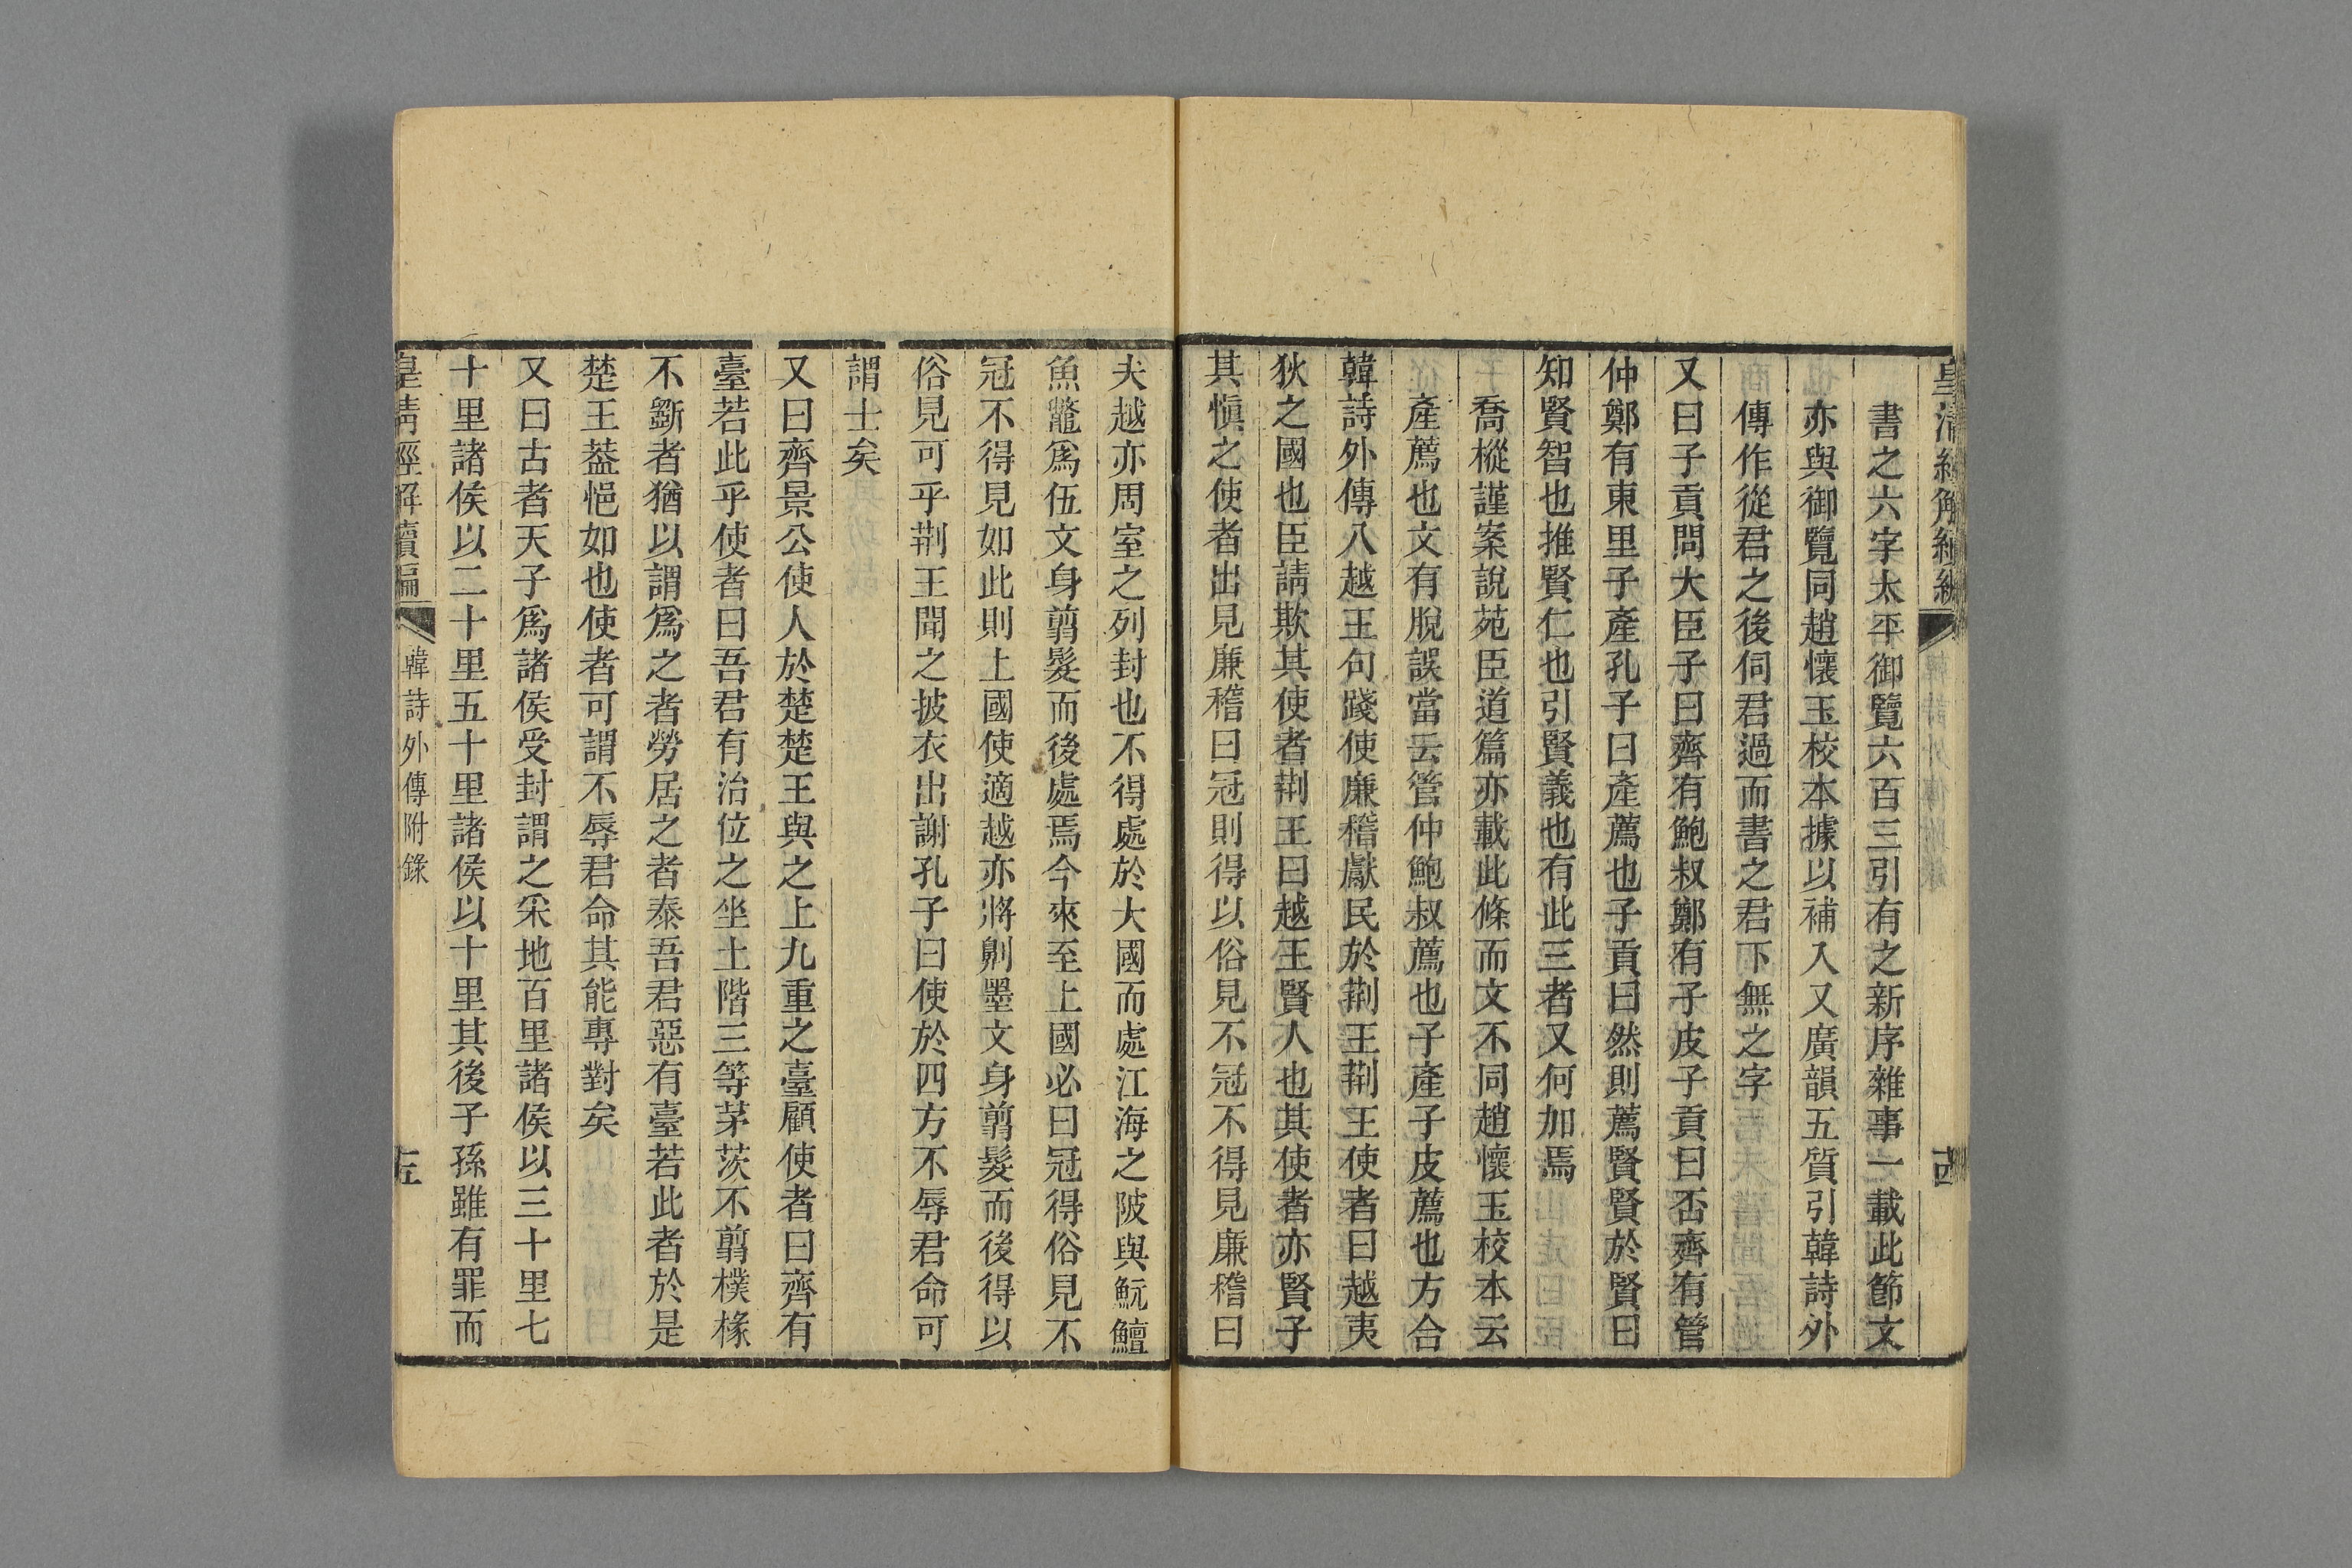 書之六字太平御覽六百三引有之新序雜事一載此節文
亦與御覽同趙懷玉校本據以補入又廣韻五質引韓詩外
傳作從君之後伺君過而書之君下無之字
又曰子貢問大臣子曰齊有鮑叔鄭有子皮子貢曰否齊有管
仲鄭有東里子產孔子曰產薦也子貢曰然則薦賢賢於賢曰
知賢智也推賢仁也引賢義也有此三者又何加焉
喬樅謹案說苑臣道篇亦載此條而文不同趙懷玉校本云
產薦也文有脫誤當云管仲鮑叔薦也子產子皮薦也方合
韓詩外傳八越王句踐使廉稽獻民於荆王荆王使者曰越夷
狄之國也臣請欺其使者荆王曰越王賢人也其使者亦賢子
其愼之使者出見廉稽曰冠則得以俗見不冠不得見廉稽曰
夫越亦周室之列封也不得處於大國而處江海之陂與魭鱣
魚鼈爲伍文身翦髮而後處焉今來至上國必曰冠得俗見不
冠不得見如此則上國使適越亦將劓墨文身翦髮而後得以
俗見可乎荆王聞之披衣出謝孔子曰使於四方不辱君命可
謂士矣
又曰齊景公使人於楚楚王與之上九重之臺顧使者曰齊有
臺若此乎使者曰吾君有治位之坐土階三等茅茨不翦樸椽
不斵者猶以謂爲之者勞居之者泰吾君惡有臺若此者於是
楚王葢悒如也使者可謂不辱君命其能專對矣
又曰古者天子爲諸侯受封謂之采地百里諸侯以三十里七
十里諸侯以二十里五十里諸侯以十里其後子孫雖有罪而
皇清經解續編
韓詩外傳附錄